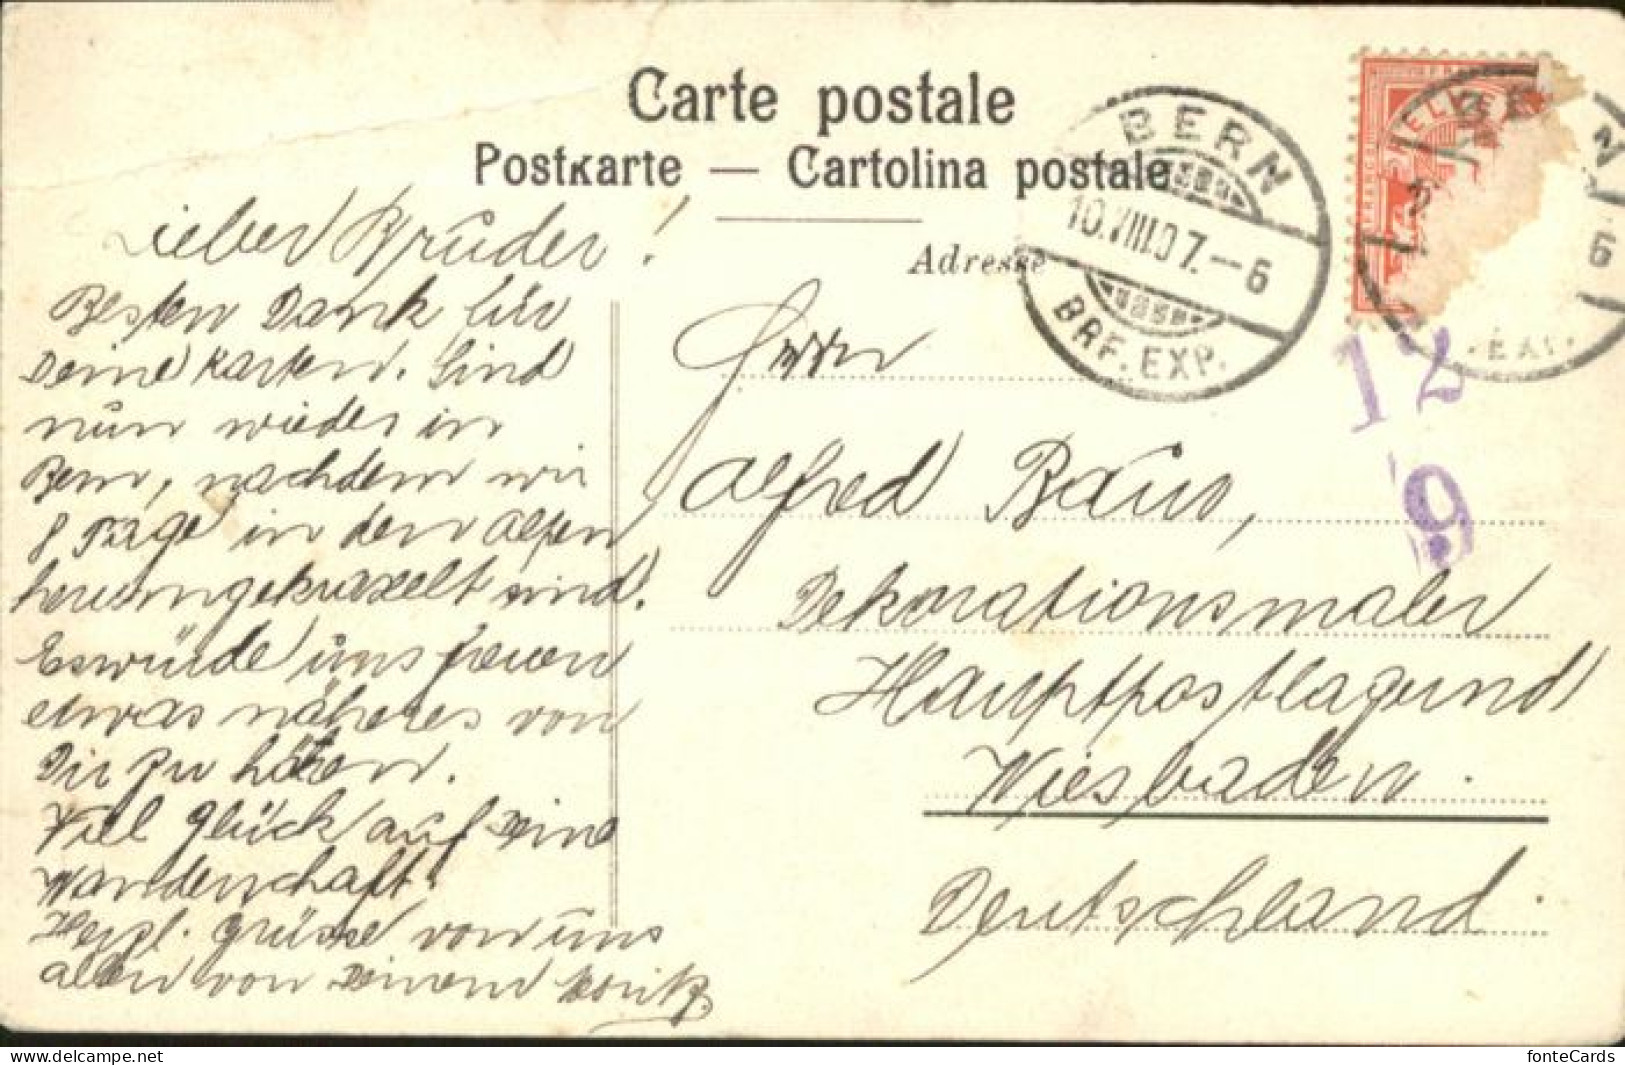 Carte postale
Postkarte — Cartolina postale
Adresse
BERN
10.VIII.07.—6
BRF. EXP.
HELVETIA
FRANCO
BERN
6
EXP.
12
9
Lieber Bruder!
Besten Dank für
Deine Karten. Sind
nun wieder in
Bern, nachdem wir
8 Tage in den Alpen
herumgekraxelt sind.
Es würde uns freuen
etwas näheres von
Dir zu hören.
Viel Glück auf Deine
Wanderschaft!
Herzl. Grüsse von uns
allen von Deinem Moritz.
Herrn
Alfred Baur,
Dekorationsmaler
Hauptpostlagernd
Wiesbaden.
Deutschland.
delcampe.net
fonteCards